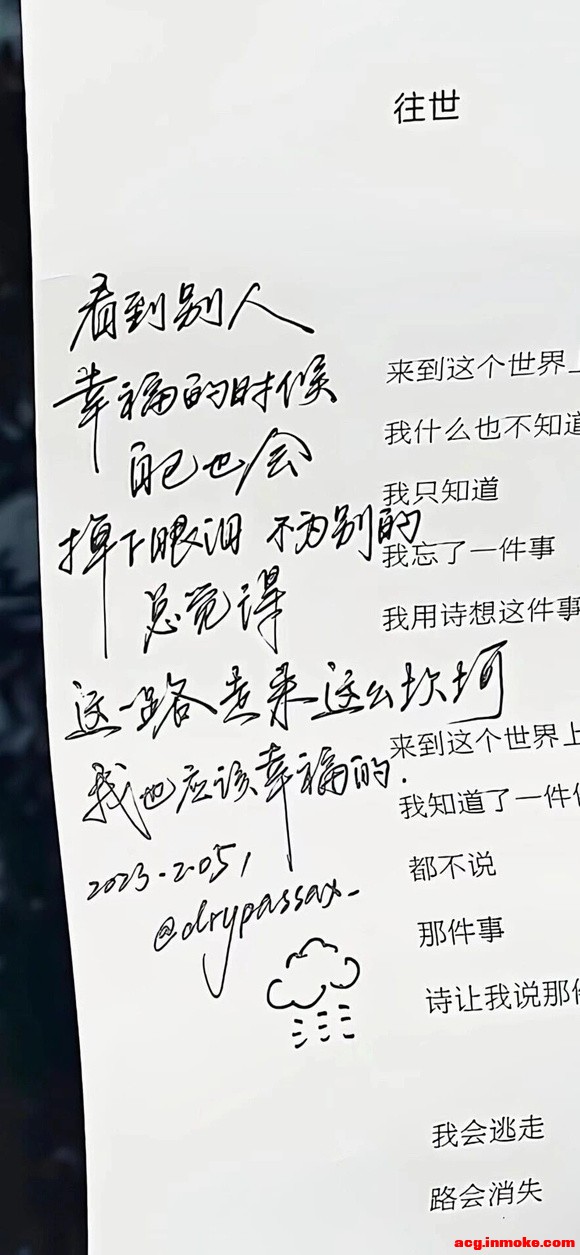 往世
看到别人
幸福的时候
自己也会
掉下眼泪 不为别的
总觉得
这一路走来这么坎坷
我也应该幸福的.
2023.2.05,
@drypassax_
来到这个世界上
我什么也不知道
我只知道
我忘了一件事
我用诗想这件事
来到这个世界上
我知道了一件
都不说
那件事
诗让我说那
我会逃走
路会消失
acg.inmoke.com